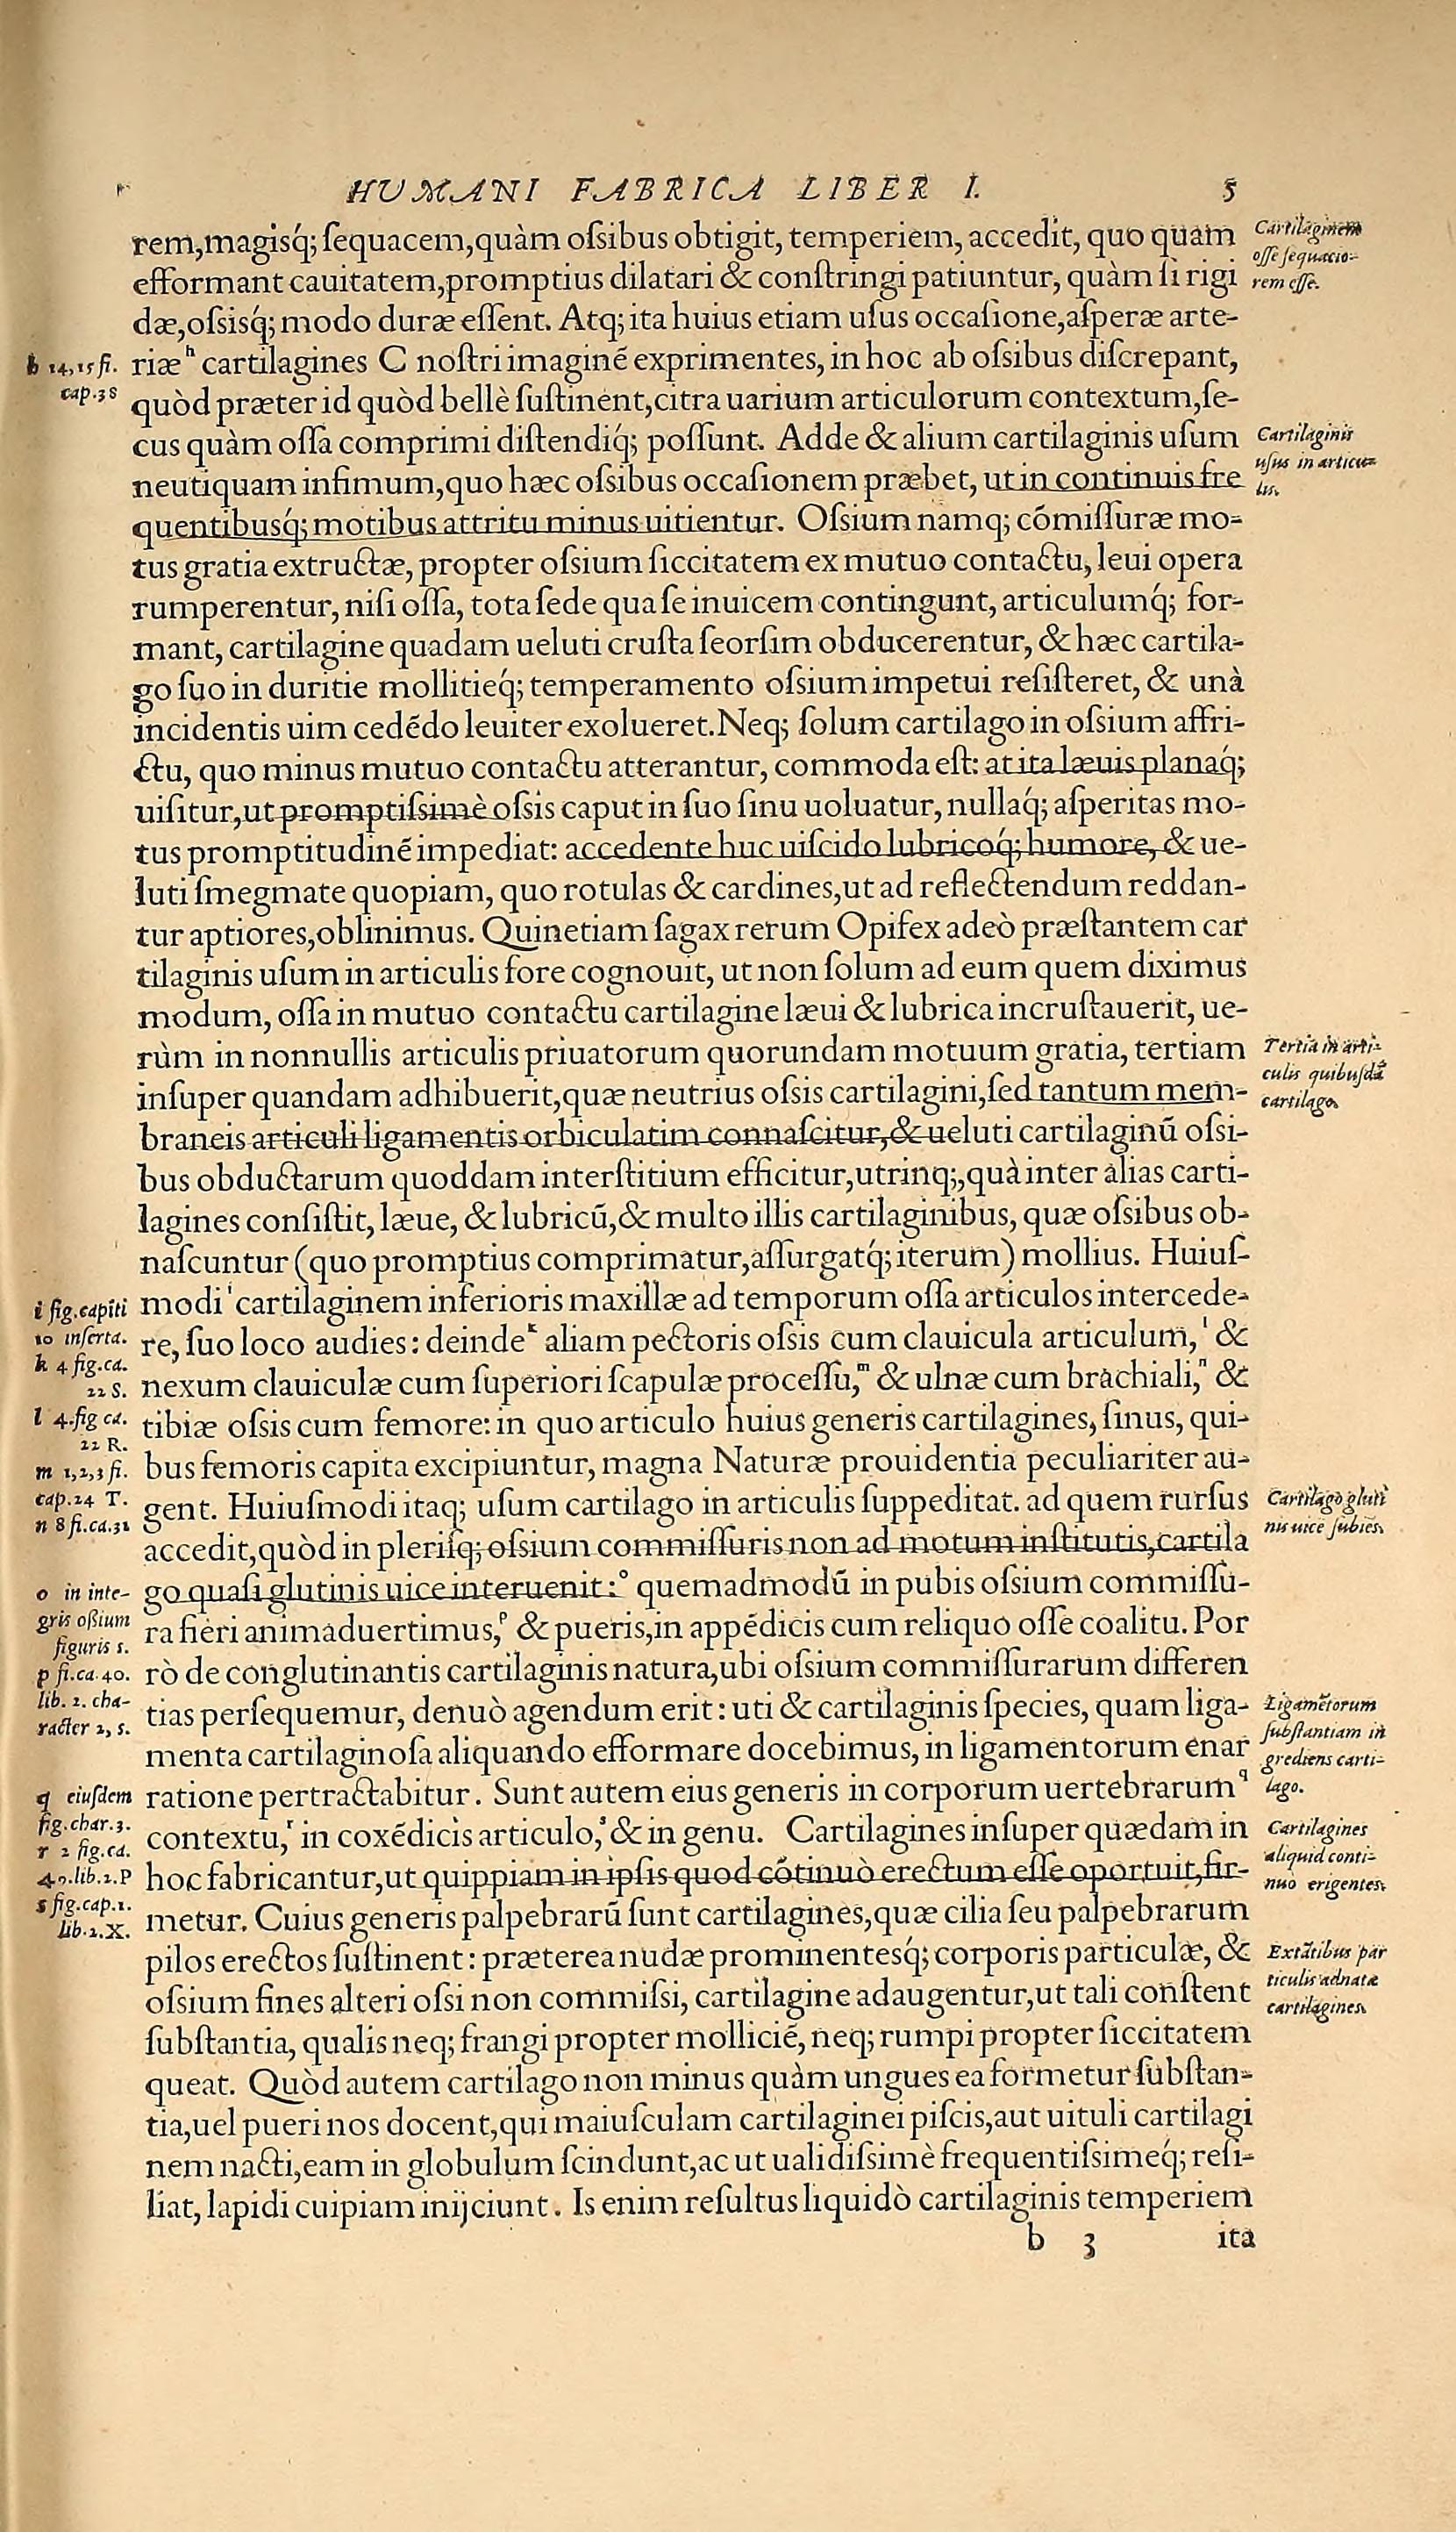 HUMANI FABRICA LIBER I. 5
rem,magisq́; ſequacem,quàm oſsibus obtigit, temperiem, accedit, quo quam
efformant cauitatem,promptius dilatari & conſtringi patiuntur, quàm ſi rigi
dæ,oſsisq́; modo duræ eſſent. Atq; ita huius etiam uſus occaſione,aſperæ arte-
riæ h cartilagines C noſtri imaginẽ exprimentes, in hoc ab oſsibus diſcrepant,
quòd præter id quòd bellè ſuſtinent,citra uarium articulorum contextum,ſe-
cus quàm oſſa comprimi diſtendiq́; poſſunt. Adde & alium cartilaginis uſum
neutiquam infimum,quo hæc oſsibus occaſionem præbet, ut in continuis fre
quentibusq́; motibus attritu minus uitientur. Oſsium namq; cõmiſſuræ mo-
tus gratia extructæ, propter oſsium ſiccitatem ex mutuo contactu, leui opera
rumperentur, niſi oſſa, tota ſede qua ſe inuicem contingunt, articulumq́; for-
mant, cartilagine quadam ueluti cruſta ſeorſim obducerentur, & hæc cartila-
go ſuo in duritie mollitieq́; temperamento oſsium impetui reſiſteret, & unà
incidentis uim cedẽdo leuiter exolueret. Neq; ſolum cartilago in oſsium affri-
ctu, quo minus mutuo contactu atterantur, commoda eſt: at ita læuis planaq́;
uiſitur,ut promptiſsimè oſsis caput in ſuo ſinu uoluatur, nullaq́; aſperitas mo-
tus promptitudinẽ impediat: accedente huc uiſcido lubricoq́; humore, & ue-
luti ſmegmate quopiam, quo rotulas & cardines,ut ad reflectendum reddan-
tur aptiores,oblinimus. Quinetiam ſagax rerum Opifex adeò præſtantem car
tilaginis uſum in articulis fore cognouit, ut non ſolum ad eum quem diximus
modum, oſſa in mutuo contactu cartilagine læui & lubrica incruſtauerit, ue-
rùm in nonnullis articulis priuatorum quorundam motuum gratia, tertiam
inſuper quandam adhibuerit,quæ neutrius oſsis cartilagini,ſed tantum mem-
braneis articuli ligamentis orbiculatim connaſcitur,& ueluti cartilaginũ oſsi-
bus obductarum quoddam interſtitium efficitur,utrinq;,quà inter alias carti-
lagines conſiſtit, læue, & lubricũ,& multo illis cartilaginibus, quæ oſsibus ob-
naſcuntur (quo promptius comprimatur,aſſurgatq́; iterum) mollius. Huiuſ-
modi i cartilaginem inferioris maxillæ ad temporum oſſa articulos intercede-
re, ſuo loco audies: deinde k aliam pectoris oſsis cum clauicula articulum, l &
nexum clauiculæ cum ſuperiori ſcapulæ proceſſu, m & ulnæ cum brachiali, n &
tibiæ oſsis cum femore: in quo articulo huius generis cartilagines, ſinus, qui-
bus femoris capita excipiuntur, magna Naturæ prouidentia peculiariter au-
gent. Huiuſmodi itaq; uſum cartilago in articulis ſuppeditat. ad quem rurſus
accedit,quòd in pleriſq; oſsium commiſſuris non ad motum inſtitutis,cartila
go quaſi glutinis uice interuenit: o quemadmodũ in pubis oſsium commiſſu-
ra fieri animaduertimus, p & pueris,in appẽdicis cum reliquo oſſe coalitu. Por
rò de conglutinantis cartilaginis natura,ubi oſsium commiſſurarum differen
tias perſequemur, denuò agendum erit: uti & cartilaginis ſpecies, quam liga-
menta cartilaginoſa aliquando efformare docebimus, in ligamentorum enar
ratione pertractabitur. Sunt autem eius generis in corporum uertebrarum q
contextu, r in coxẽdicis articulo, s & in genu. Cartilagines inſuper quædam in
hoc fabricantur,ut quippiam in ipſis quod cõtinuò erectum eſſe oportuit,fir-
metur. Cuius generis palpebrarũ ſunt cartilagines,quæ cilia ſeu palpebrarum
pilos erectos ſuſtinent: præterea nudæ prominentesq́; corporis particulæ, &
oſsium fines alteri oſsi non commiſsi, cartilagine adaugentur,ut tali conſtent
ſubſtantia, qualis neq; frangi propter molliciẽ, neq; rumpi propter ſiccitatem
queat. Quòd autem cartilago non minus quàm ungues ea formetur ſubſtan-
tia,uel pueri nos docent,qui maiuſculam cartilaginei piſcis,aut uituli cartilagi
nem nacti,eam in globulum ſcindunt,ac ut ualidiſsimè frequentiſsimeq́; reſi-
liat, lapidi cuipiam inijciunt. Is enim reſultus liquidò cartilaginis temperiem
b 3 ita
h 14,15 fi.
cap.38
i fig.capiti
10 inſerta.
k 4 fig.ca.
22 S.
l 4.fig ca.
22 R.
m 1,2,3 fi.
cap.24 T.
n 8 fi.ca.31
o in inte-
gris oſsium
figuris s.
p fi.ca.40.
lib. 2. cha-
racter 2, s.
q eiuſdem
fig.char.3.
r 2 fig.ca.
49.lib.2.P
s fig.cap.1.
lib.2.X.
Cartilaginem
oſſe ſequacio-
rem eſſe.
Cartilaginis
uſus in articu-
lis.
Tertia in arti-
culis quibuſdã
cartilago.
Cartilago gluti
nis uice ſubiẽs.
Ligamẽtorum
ſubſtantiam in
grediens carti-
lago.
Cartilagines
aliquid conti-
nuo erigentes.
Extãtibus par
ticulis adnatæ
cartilagines.